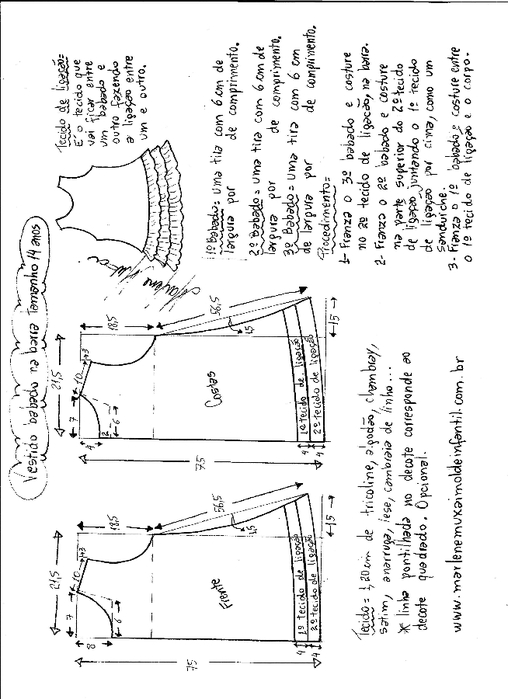 Vestido babado na barra Tamanho 14 anos
Tecido de ligação=
É o tecido que
vai ficar entre
um babado e
outro fazendo
a ligação entre
um e outro.
1º Babado= Uma tira com 6 cm de
largura por de comprimento.
2º Babado= Uma tira com 6 cm de
largura por de comprimento.
3º Babado= Uma tira com 6 cm
de largura por de comprimento.
Procedimento=
1- Franza o 3º babado e costure
no 2º tecido de ligação na barra.
2- Franza o 2º babado e costure
na parte superior do 2º tecido
de ligação juntando o 1º tecido
de ligação por cima, como um
Sanduíche.
3- Franza o 1º babado e costure entre
o 1º tecido de ligação e o corpo.
21,5
7
10
43
18,5
8
6
Frente
56,5
15
1º tecido de ligação
2º tecido de ligação
4
15
75
21,5
7
10
43
18,5
6
Costas
56,5
15
1º tecido de ligação
2º tecido de ligação
4
4
15
75
Tecido= 1,20 cm de tricoline, algodão, chambray,
satim, anarruga, lese, cambraia de linho...
* linha pontilhada no decote corresponde ao
decote quadrado. Opcional.
www.marlenemukaimoldeinfantil.com.br